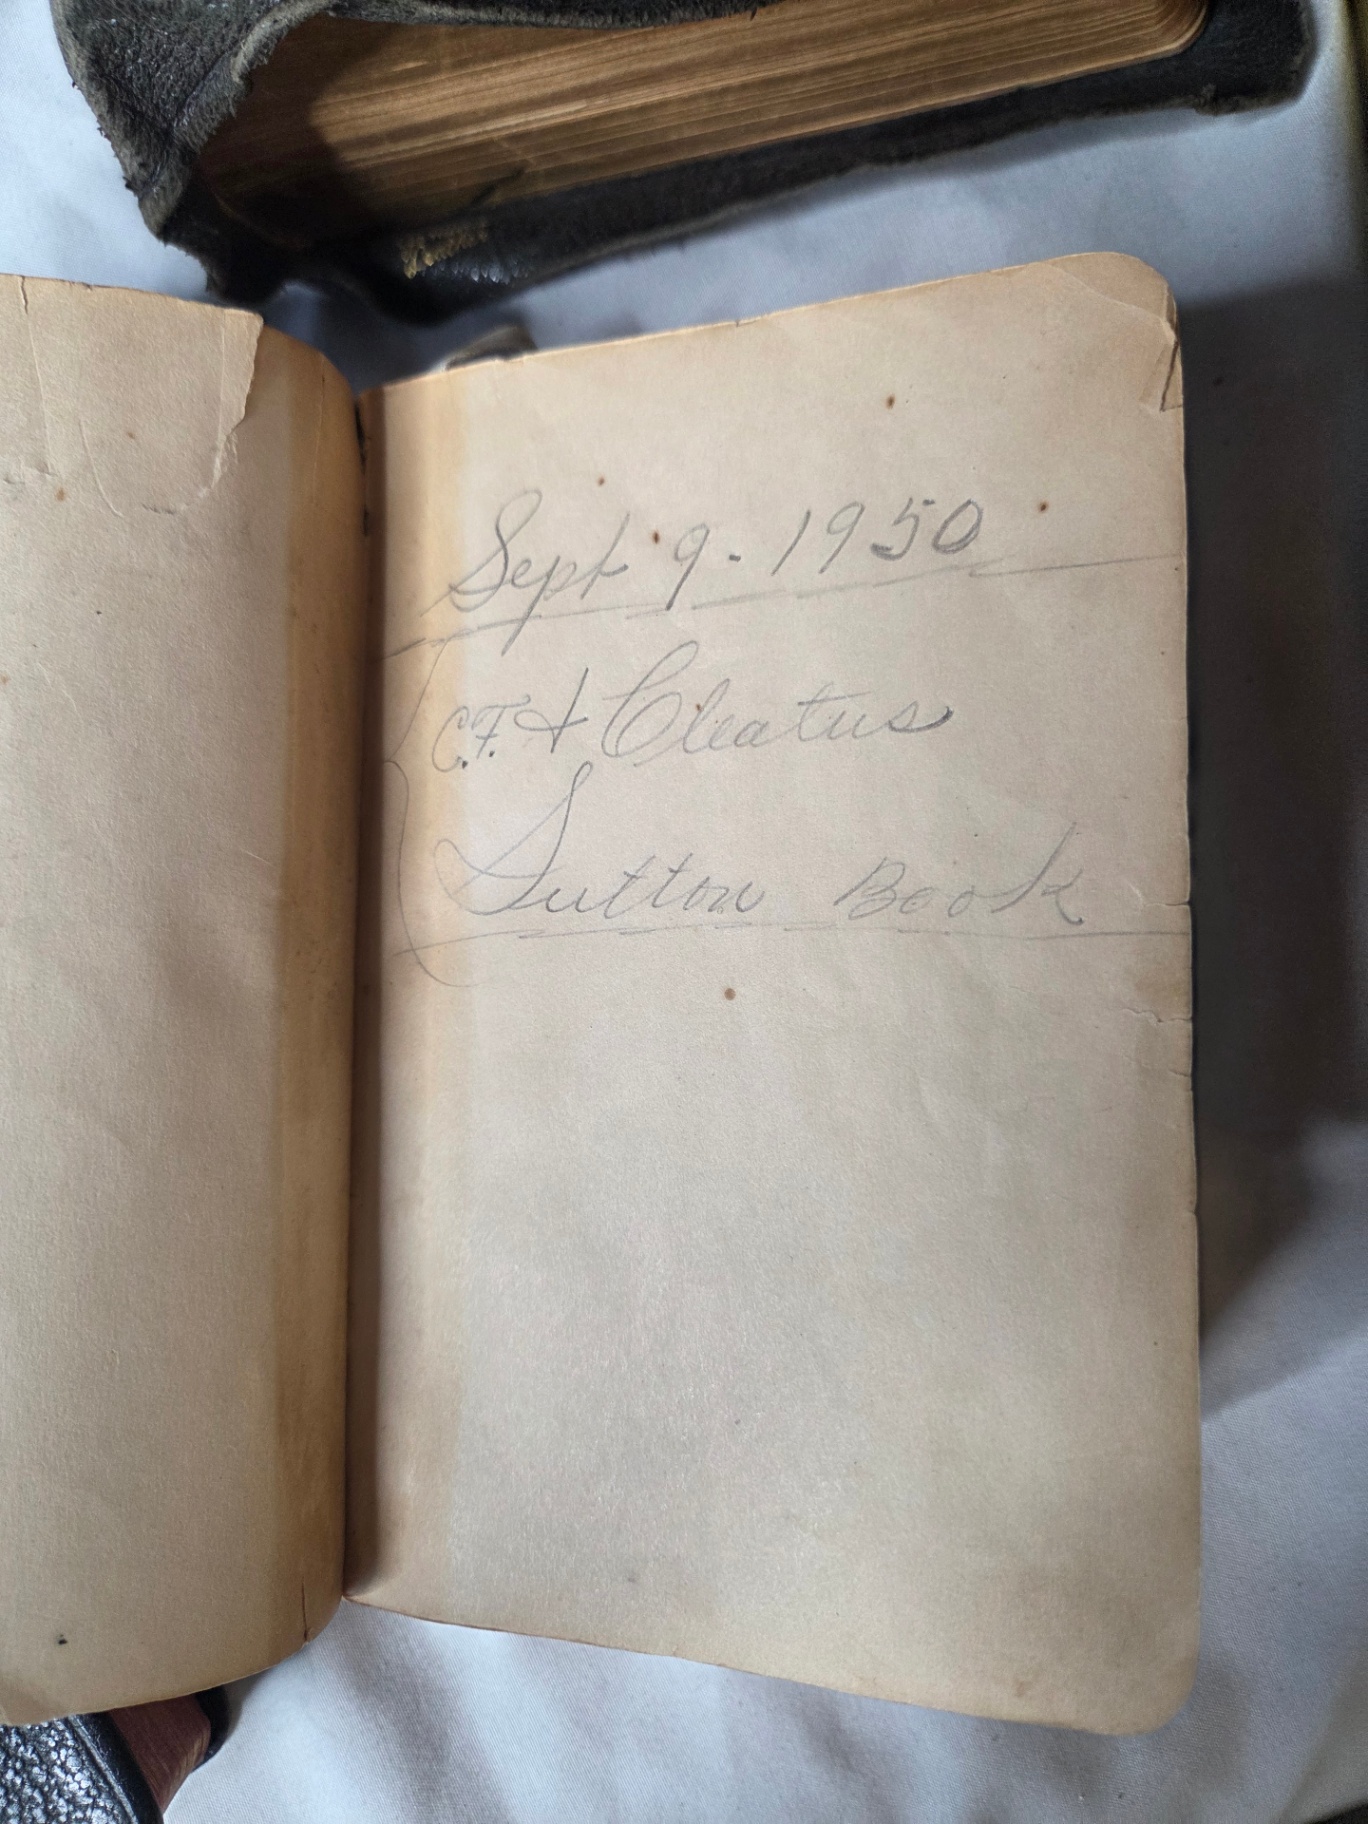 Sept 9 - 1950
C.F. & Cleatus
Sutton Book